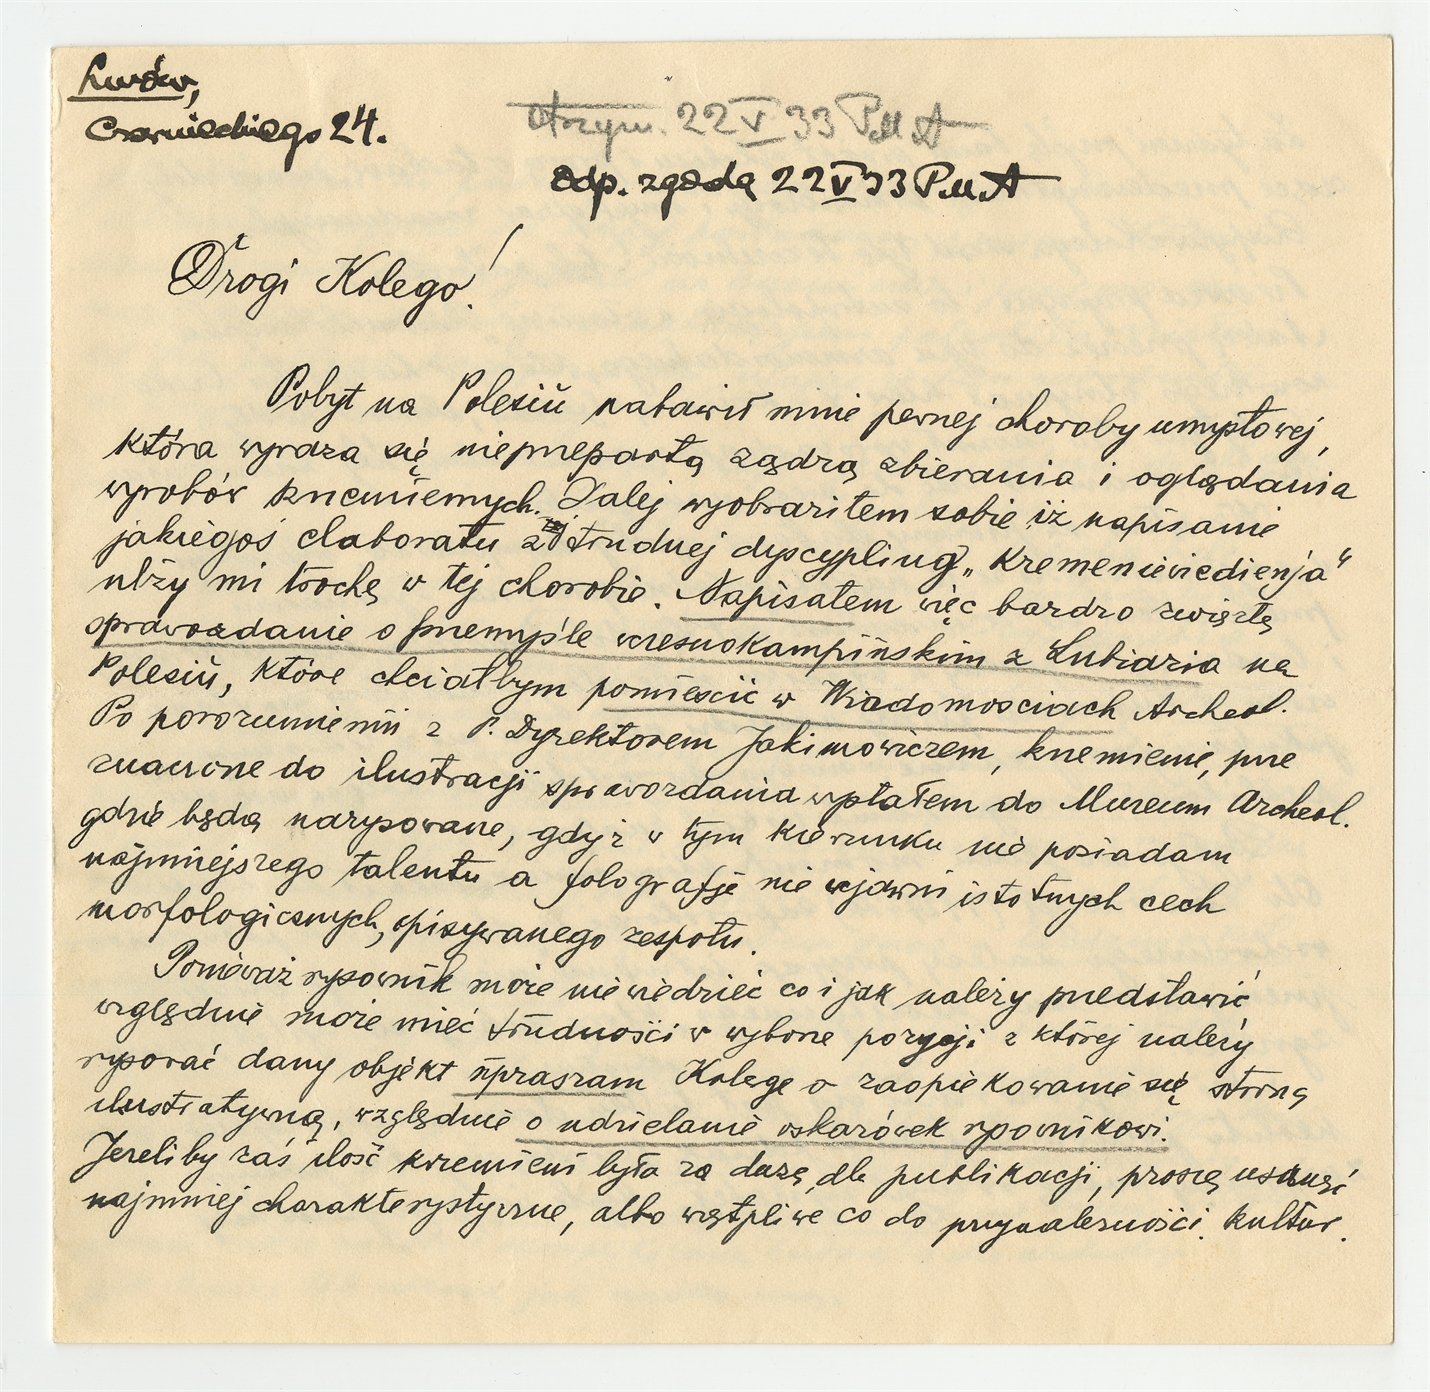 Lwów,
Czarnieckiego 24.
Otrzym. 22 V 33 P.M.A
Odp. zgodą 22 V 33 P.M.A
Drogi Kolego!
Pobyt na Polesiu nabawił mnie pewnej choroby umysłowej,
która wyraża się nieprzepartą żądzą zbierania i oglądania
wyrobów krzemiennych. Dalej wyobraziłem sobie iż napisanie
jakiegoś elaboratu z tej trudnej dyscypliny „Kremeniewiedienja"
ulży mi trochę w tej chorobie. Napisałem więc bardzo zwięzłe
sprawozdanie o przemyśle wczesnokampińskim z Lubiazia na
Polesiu, które chciałbym pomieścić w Wiadomościach Archeol.
Po porozumieniu z P. Dyrektorem Jakimowiczem, krzemienie, prze
znaczone do ilustracji sprawozdania wysłałem do Muzeum Archeol.
gdzie będą narysowane, gdyż w tym kierunku nie posiadam
najmniejszego talentu a fotografje nie wyjawni istotnych cech
morfologicznych, opisywanego zespołu.
Ponieważ rysownik może nie wiedzieć co i jak należy przedstawić
względnie może mieć trudności w wyborze pozycji z której należy
rysować dany objekt upraszam Kolegę o zaopiekowanie się stroną
ilustratywną, względnie o udzielanie wskazówek rysownikowi.
Jeżeliby zaś ilość krzemieni była za dużą, dla publikacji, proszę usunąć
najmniej charakterystyczne, albo wątpliwe co do przynależności kultur.